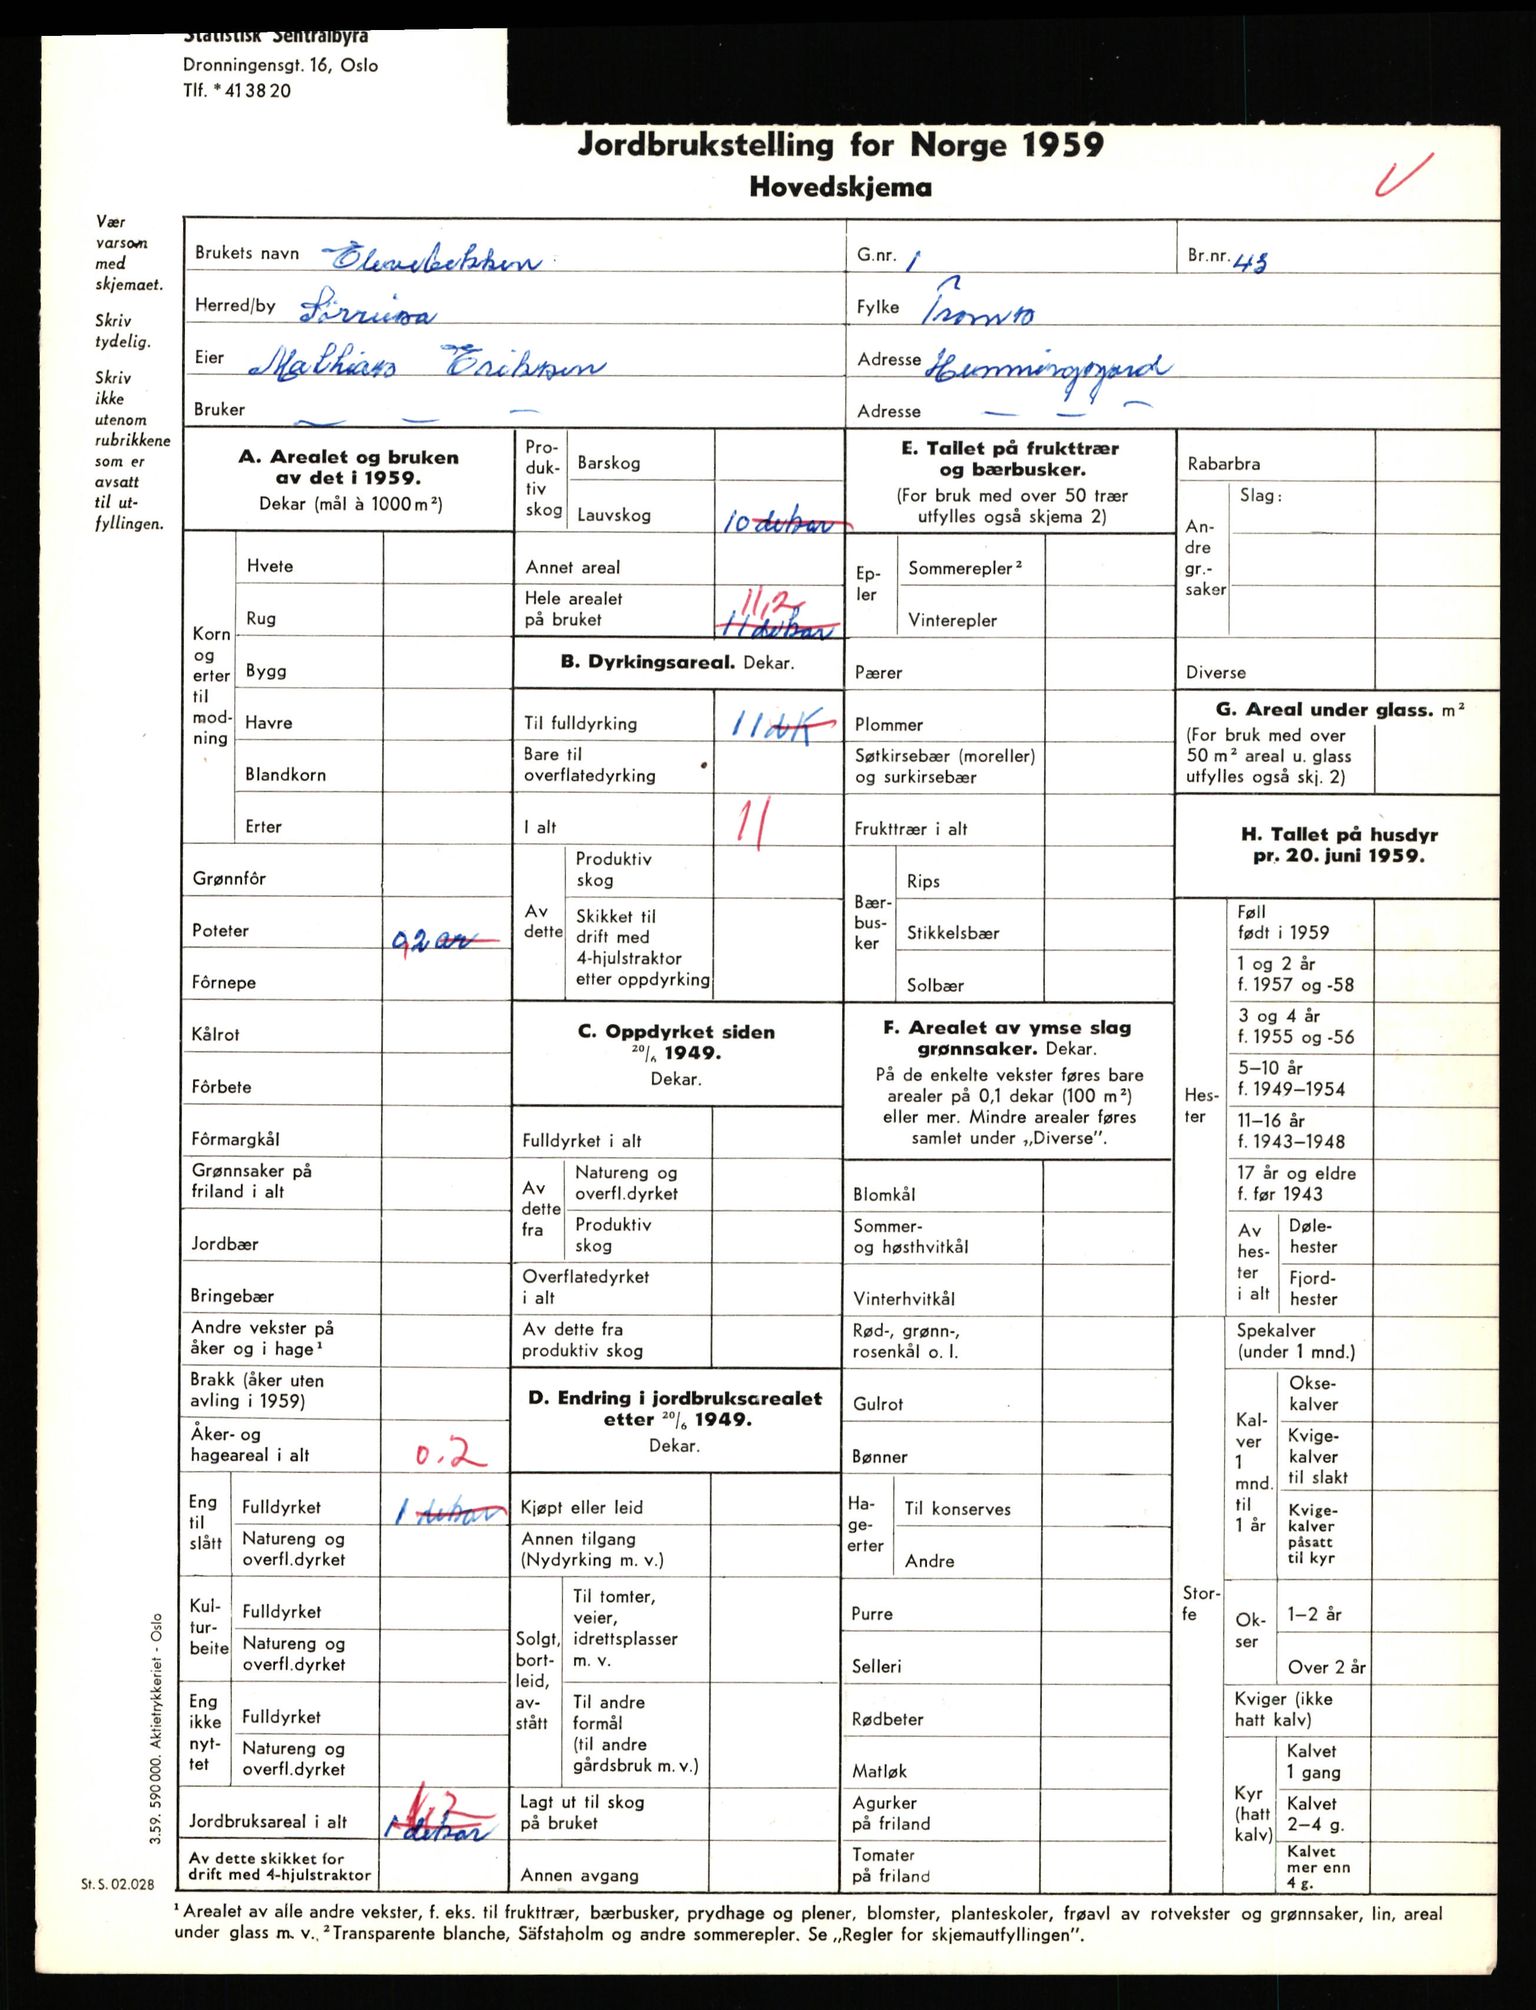 Statistisk Sentralbyrå
Dronningensgt. 16, Oslo
Tlf. * 41 38 20
Jordbrukstelling for Norge 1959
Hovedskjema
Vær
varsom
med
skjemaet.
Skriv
tydelig.
Skriv
ikke
utenom
rubrikkene
som er
avsatt
til ut-
fyllingen.
Brukets navn
G.nr. 1
Br.nr. 43
Herred/by
Fylke Tromsø
Eier Mathias Eriksen
Adresse
Bruker — — —
Adresse — — —
A. Arealet og bruken
av det i 1959.
Dekar (mål à 1000 m²)
Korn
og
erter
til
mod-
ning
Hvete
Rug
Bygg
Havre
Blandkorn
Erter
Grønnfôr
Poteter 0,2 ar
Fôrnepe
Kålrot
Fôrbete
Fôrmargkål
Grønnsaker på
friland i alt
Jordbær
Bringebær
Andre vekster på
åker og i hage¹
Brakk (åker uten
avling i 1959)
Åker- og
hageareal i alt 0.2
Eng
til
slått
Fulldyrket 1 dekar
Natureng og
overfl.dyrket
Kul-
tur-
beite
Fulldyrket
Natureng og
overfl.dyrket
Eng
ikke
nyt-
tet
Fulldyrket
Natureng og
overfl.dyrket
1,2
Jordbruksareal i alt 1 dekar
Av dette skikket for
drift med 4-hjulstraktor
Pro-
duk-
tiv
skog
Barskog
Lauvskog 10 dekar
Annet areal
Hele arealet 11,2
på bruket 11 dekar
B. Dyrkingsareal. Dekar.
Til fulldyrking 11 dK
Bare til
overflatedyrking
I alt 11
Av
dette
Produktiv
skog
Skikket til
drift med
4-hjulstraktor
etter oppdyrking
C. Oppdyrket siden
20/6 1949.
Dekar.
Fulldyrket i alt
Av
dette
fra
Natureng og
overfl.dyrket
Produktiv
skog
Overflatedyrket
i alt
Av dette fra
produktiv skog
D. Endring i jordbruksarealet
etter 20/6 1949.
Dekar.
Kjøpt eller leid
Annen tilgang
(Nydyrking m. v.)
Solgt,
bort-
leid,
av-
stått
Til tomter,
veier,
idrettsplasser
m. v.
Til andre
formål
(til andre
gårdsbruk m. v.)
Lagt ut til skog
på bruket
Annen avgang
E. Tallet på frukttrær
og bærbusker.
(For bruk med over 50 trær
utfylles også skjema 2)
Ep-
ler
Sommerepler²
Vinterepler
Pærer
Plommer
Søtkirsebær (moreller)
og surkirsebær
Frukttrær i alt
Bær-
bus-
ker
Rips
Stikkelsbær
Solbær
F. Arealet av ymse slag
grønnsaker. Dekar.
På de enkelte vekster føres bare
arealer på 0,1 dekar (100 m²)
eller mer. Mindre arealer føres
samlet under „Diverse".
Blomkål
Sommer-
og høsthvitkål
Vinterhvitkål
Rød-, grønn-,
rosenkål o. l.
Gulrot
Bønner
Ha-
ge-
erter
Til konserves
Andre
Purre
Selleri
Rødbeter
Matløk
Agurker
på friland
Tomater
på friland
Rabarbra
An-
dre
gr.-
saker
Slag:
Diverse
G. Areal under glass. m²
(For bruk med over
50 m² areal u. glass
utfylles også skj. 2)
H. Tallet på husdyr
pr. 20. juni 1959.
Hes-
ter
Føll
født i 1959
1 og 2 år
f. 1957 og -58
3 og 4 år
f. 1955 og -56
5–10 år
f. 1949–1954
11–16 år
f. 1943–1948
17 år og eldre
f. før 1943
Av
hes-
ter
i alt
Døle-
hester
Fjord-
hester
Stor-
fe
Spekalver
(under 1 mnd.)
Kal-
ver
1
mnd.
til
1 år
Okse-
kalver
Kvige-
kalver
til slakt
Kvige-
kalver
påsatt
til kyr
Ok-
ser
1–2 år
Over 2 år
Kviger (ikke
hatt kalv)
Kyr
(hatt
kalv)
Kalvet
1 gang
Kalvet
2–4 g.
Kalvet
mer enn
4 g.
3.59. 590 000. Aktietrykkeriet - Oslo
St. S. 02.028
¹ Arealet av alle andre vekster, f. eks. til frukttrær, bærbusker, prydhage og plener, blomster, planteskoler, frøavl av rotvekster og grønnsaker, lin, areal
under glass m. v. ² Transparente blanche, Säfstaholm og andre sommerepler. Se „Regler for skjemautfyllingen".